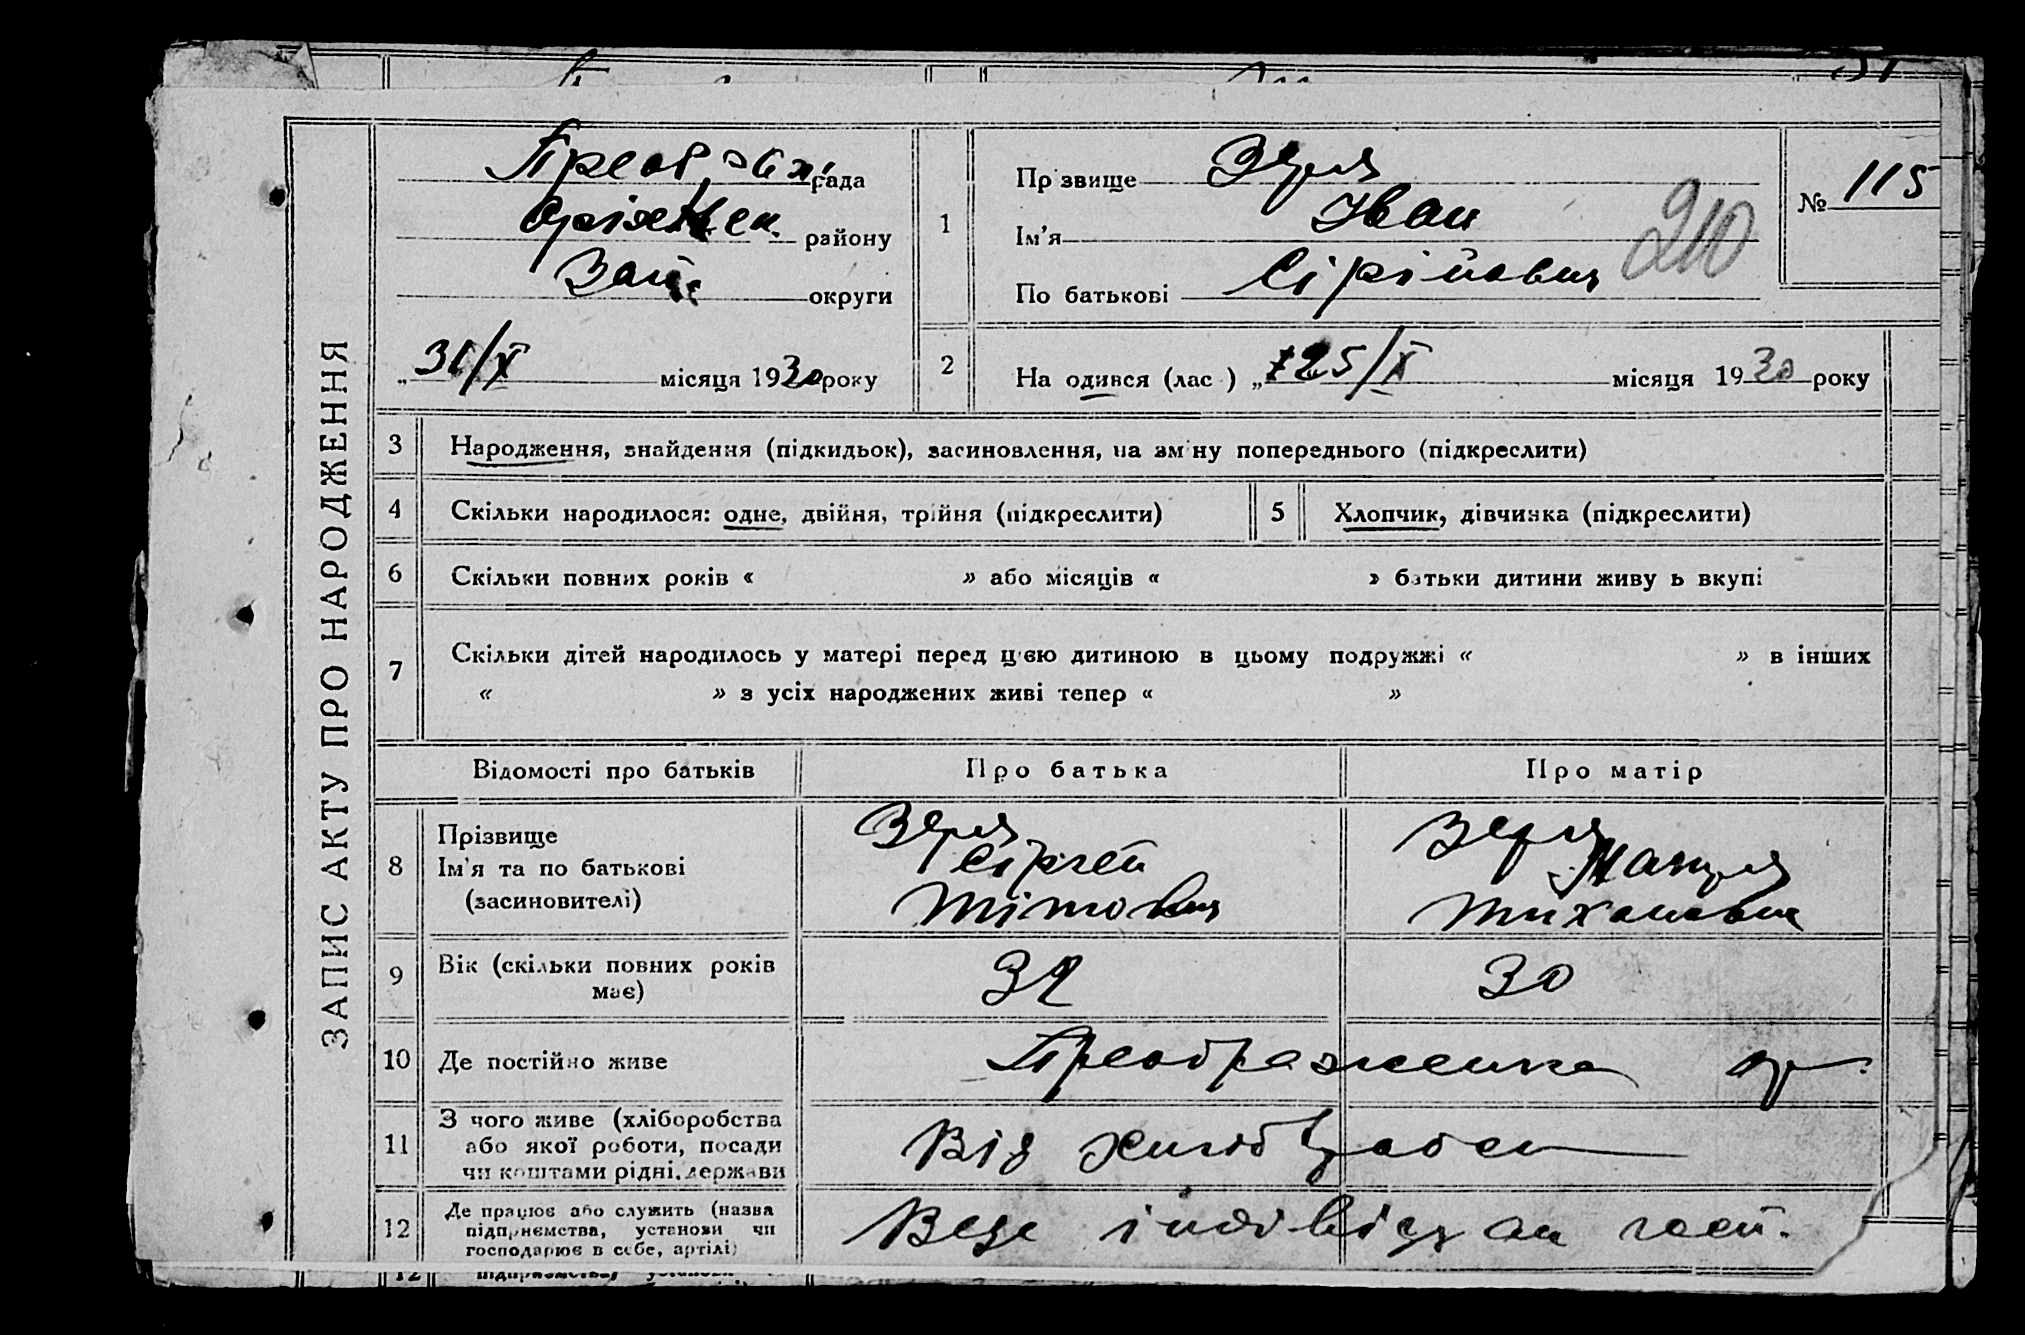 ЗАПИС АКТУ ПРО НАРОДЖЕННЯ
рада
району
округи
"31/X місяця 1930 року
1
Прізвище Зуря
Ім'я Іван
По батькові Сірійович
№ 115
210
2
На одився (лас ) „25/X місяця 1930 року
3 Народження, знайдення (підкидьок), засиновлення, на зміну попереднього (підкреслити)
4 Скільки народилося: одне, двійня, трійня (підкреслити)
5 Хлопчик, дівчинка (підкреслити)
6 Скільки повних років « » або місяців « » батьки дитини живуть вкупі
7 Скільки дітей народилось у матері перед цією дитиною в цьому подружжі « » в інших
« » з усіх народжених живі тепер « »
Відомості про батьків Про батька Про матір
8 Прізвище
Ім'я та по батькові
(засиновителі)
Зуря
Сіргей
Тітович
Зуря
Тиханавна
9 Вік (скільки повних років має) 32 30
10 Де постійно живе Преображенка ор.
11 З чого живе (хліборобства
або якої роботи, посади
чи коштами рідні, держави
Від
12 Де працює або служить (назва
підприємства, установи чи
господарює в себе, артілі)
Веде індівідуал госп.